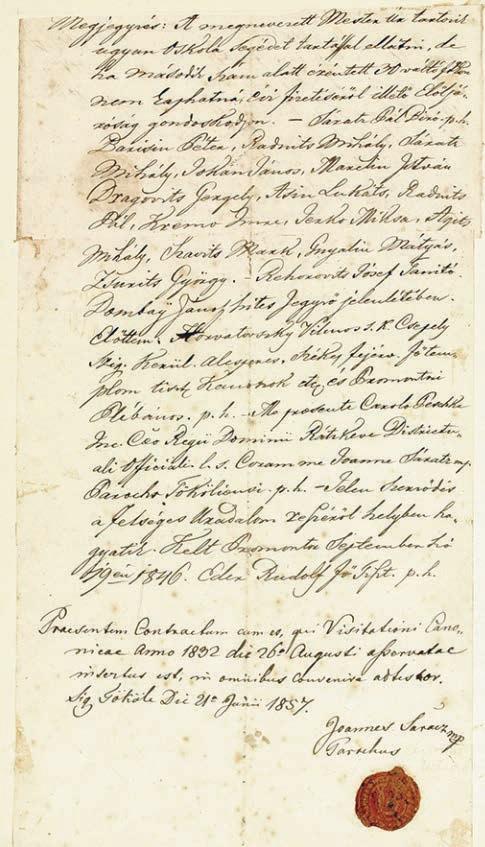 Megjegyzés: A megnevezett Mester Úr tartozik
ugyan Oskola Segédet tartással ellátni, de
ha második szám alatt érintett 30 váltó
nem kaphatná, évi fizetéséről illető Előljá-
róság gondoskodjon. — Száratz Pál Biró. p.h.
Mihály, Jokán János, István
Dragovits Gergely, Asin Lukáts, Radnits
Pál, Kremo Imre, Jenko Miksa, Agits
Mihály, Szavits Mark, Mátyás,
Zsurits György. — Rehorovits Jósef Tanító.
Dombay János hites Jegyző jelenlétében.
Előttem. Horvatovszky Vilmos s.k. Csepely
Szig. Kerül. Alesperes, Székes fejérv. főtem-
plom tisz. Kanonok etc és Promontori
Plébános. p.h. — Me praesente Carolo Peschke
Inc. Cæo Regii Dominii Ráczkeve Districtu-
ali Officiali. l.s. Coram me Joanne Száratz mp.
Parocho Tököliensi. p.h. — Jelen Szerződés
a felséges Uradalom részéről helyben ha-
gyatik. Kelt Promontor September hó
19én 1846. Eder Rudolf Jó Tiszt. p.h.
Praesentem Contractum cum eo, qui Visitationi Cano-
nicae Anno 1832 die 26a Augusti asservatae
insertus est, in omnibus convenire adtestor.
Sig. Tököle Die 21a Junii 1857.
Joannes Saracz mp
Parochus